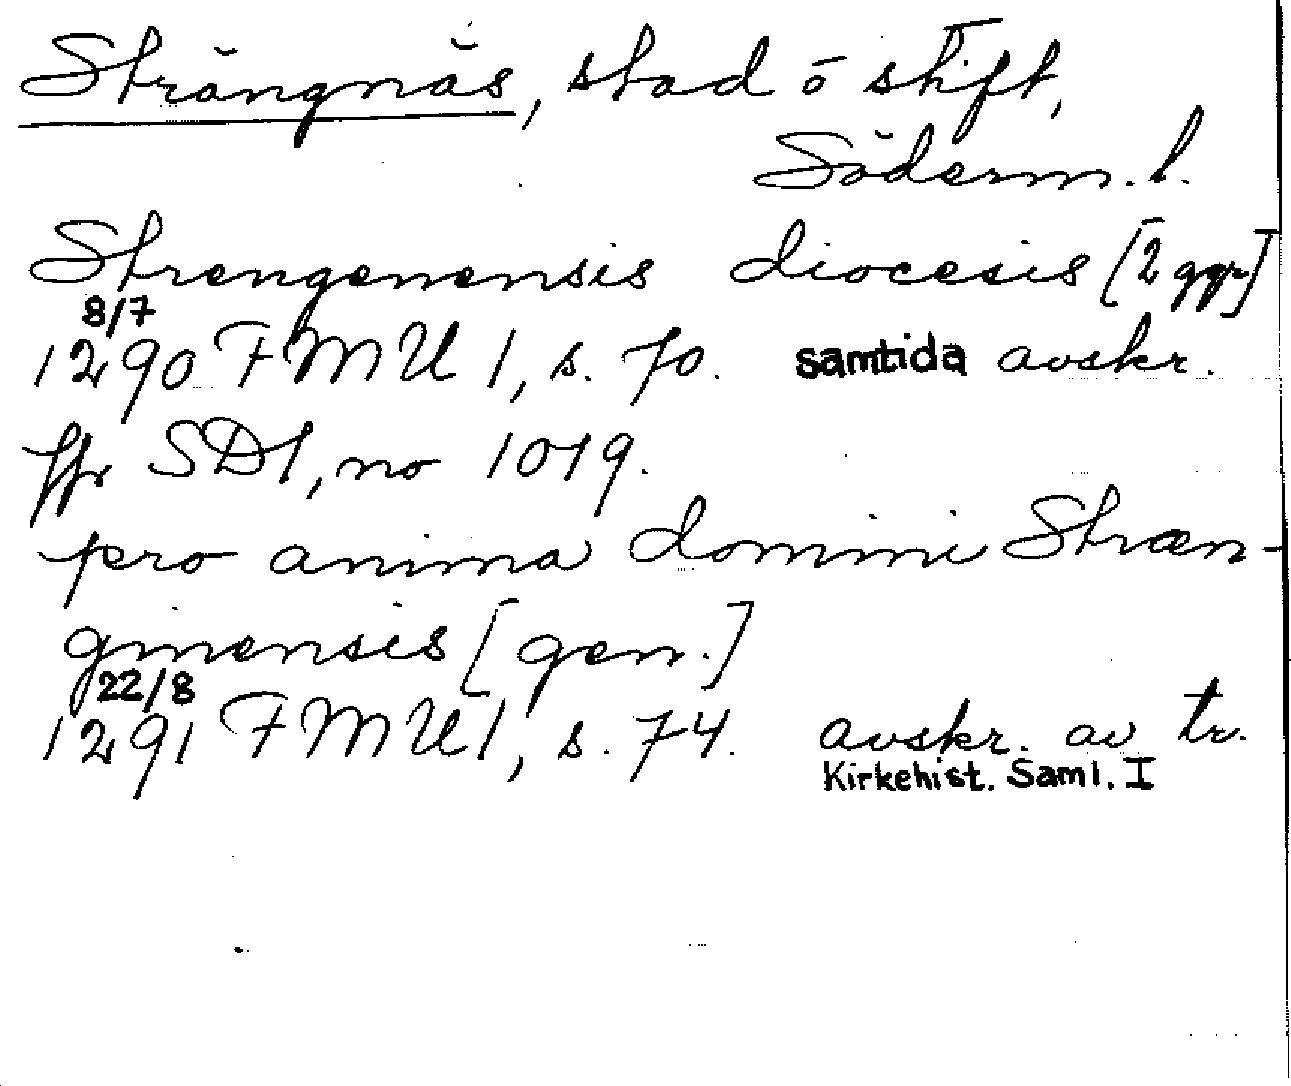 Strängnäs, stad o stift,
Söderm. l.
Strengenensis diocesis [2 ggr]
8/7
1290 FMU 1, s. 70. samtida avskr.
jfr SD1, no 1019.
pro anima domini Stræn-
ginensis [gen.]
22/8
1291 FMU 1, s. 74. avskr. av tr.
Kirkehist. Saml. I